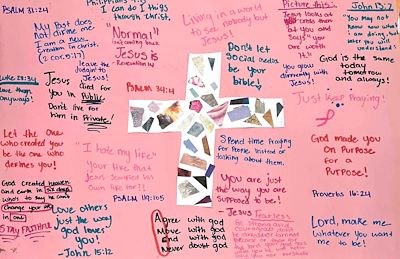 PSALM 31:24
My Past does not define me.
I am a new
creation in christ.
(2 cor. 5:17)
Philippians 4:13
I can do all things
through christ.
"Normal"
isn't coming back
JESUS is
- Revelation 14
Living in a world
to set nobody but
Jesus!
Picture this:
Jesus looks at
you and says
you are
worth
it!!
John 13:7
"You may not
know now what
I am doing, but
later you will
understand."
leave the
judgin' to
Jesus!
Luke 23:34
Love them
anyways!
Jesus
died for
you in
Public,
Don't live for
him in Private!
PSALM 34:4
Don't let
Social media
be your
bible!
God is the same
today
tomorrow
and always!
you glow
differently with
Jesus!
Just keep Praying!
Let the One
who created you
be the one who
defines you!
"I hate my life"
your life that
Jesus sacrificed his
own life for!!
Spend time Praying
for People instead of
talking about them.
God made you
on Purpose
for a
Purpose!
You are just
the way you are
supposed to be!
Proverbs 16:24
God created heaven
and earth in six days
who's to say he can't
Change your life
in one
STAY FAITHFUL
PSALM 119:105
Love others
just the way
god loves
you!
-John, 15:12
Agree with god
Move with god
End with god
Never doubt god
Jesus Fearless
Lord, make me
whatever you want
me to be!